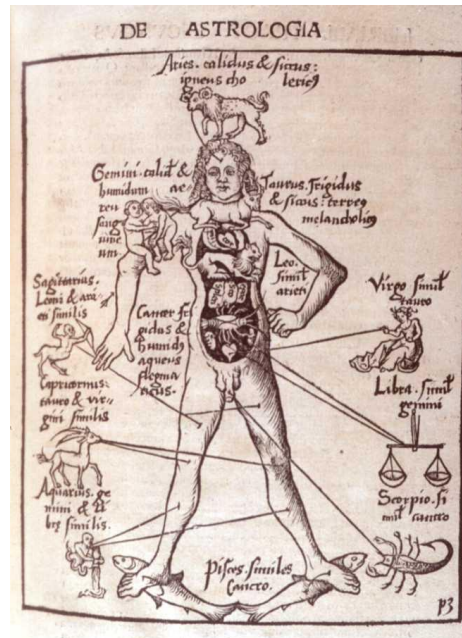 DE ASTROLOGIA
Aries. calidus & siccus:
igneus cho lericꝰ
Gemini. calid &
humidum ae
reu
sang
uine
um
Taurus. frigidus
& sicus: terreꝰ
melancholicꝰ
Leo.
simil
arieti
Sagitarius.
Leoni & ari
eti similis
Cancer fri
gidus &
humidꝰ
aqueus
flegma
ticus.
Virgo simil
tauro
Capricornus.
tauro & vir
gini similis
Libra. simil
gemini
Aquarius. ge
mini & li
brę similis.
Scorpio. si
mil cancro
Pisces. similes
Cancro.
p3